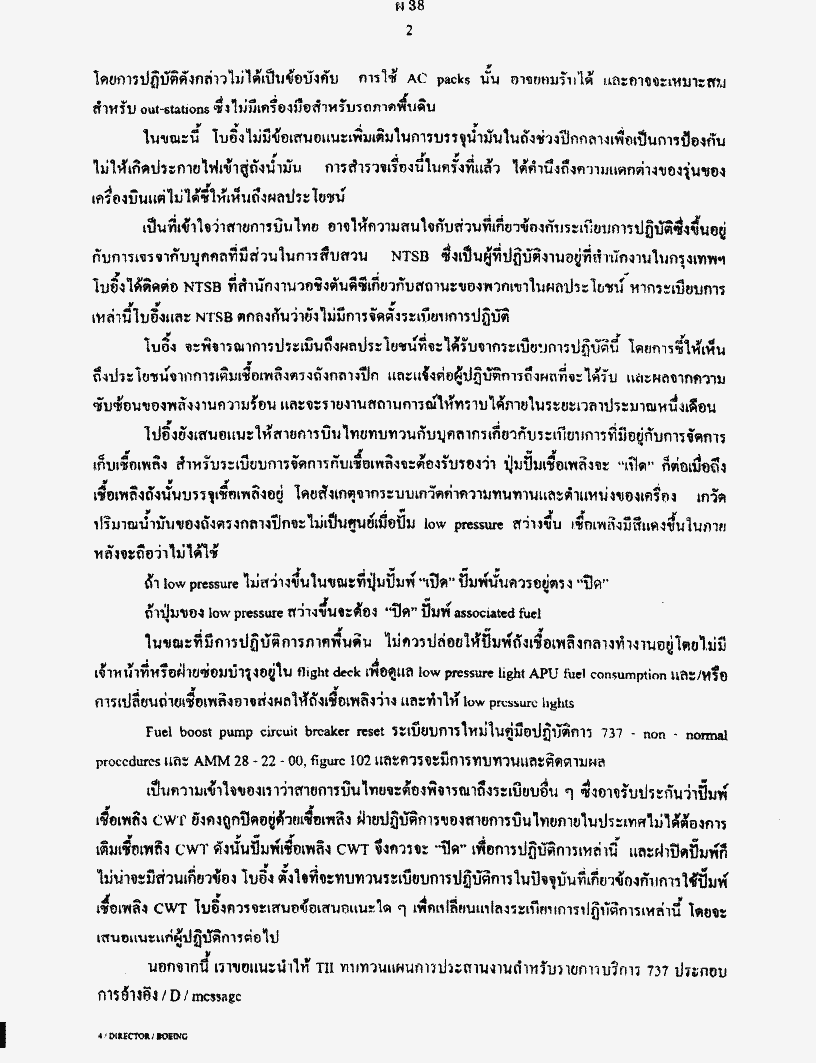 ผ 38
2
โดยการปฏิบัติดังกล่าวไม่ได้เป็นข้อบังคับ การใช้ AC packs นั้น อาจยอมรับได้ และอาจจะเหมาะสม
สำหรับ out-stations ซึ่งไม่มีเครื่องมือสำหรับรถภาคพื้นดิน
ในขณะนี้ โบอิ้งไม่มีข้อเสนอแนะเพิ่มเติมในการบรรจุน้ำมันในถังช่วงปีกกลางเพื่อเป็นการป้องกัน
ไม่ให้เกิดประกายไฟเข้าสู่ถังน้ำมัน การสำรวจเรื่องนี้ในครั้งที่แล้ว ได้คำนึงถึงความแตกต่างของรุ่นของ
เครื่องบินแต่ไม่ได้ชี้ให้เห็นถึงผลประโยชน์
เป็นที่เข้าใจว่าสายการบินไทย อาจให้ความสนใจกับส่วนที่เกี่ยวข้องกับระเบียบการปฏิบัติซึ่งขึ้นอยู่
กับการเจรจากับบุคคลที่มีส่วนในการสืบสวน NTSB ซึ่งเป็นผู้ที่ปฏิบัติงานอยู่ที่สำนักงานในกรุงเทพฯ
โบอิ้งได้ติดต่อ NTSB ที่สำนักงานวอชิงตันดีซีเกี่ยวกับสถานะของพวกเขาในผลประโยชน์ หากระเบียบการ
เหล่านี้โบอิ้งและ NTSB ตกลงกันว่ายังไม่มีการจัดตั้งระเบียบการปฏิบัติ
โบอิ้ง จะพิจารณาการประเมินถึงผลประโยชน์ที่จะได้รับจากระเบียบการปฏิบัตินี้ โดยการชี้ให้เห็น
ถึงประโยชน์จากการเติมเชื้อเพลิงตรงถังกลางปีก และแจ้งต่อผู้ปฏิบัติการถึงผลที่จะได้รับ และผลจากความ
ซับซ้อนของพลังงานความร้อน และจะรายงานสถานการณ์ให้ทราบได้ภายในระยะเวลาประมาณหนึ่งเดือน
โบอิ้งยังเสนอแนะให้สายการบินไทยทบทวนกับบุคลากรเกี่ยวกับระเบียบการที่มีอยู่กับการจัดการ
เก็บเชื้อเพลิง สำหรับระเบียบการจัดการกับเชื้อเพลิงจะต้องรับรองว่า ปุ่มปั๊มเชื้อเพลิงจะ “เปิด” ก็ต่อเมื่อถัง
เชื้อเพลิงถังนั้นบรรจุเชื้อเพลิงอยู่ โดยสังเกตจากระบบเกวัดค่าความทนทานและตำแหน่งของเครื่อง เกวัด
ปริมาณน้ำมันของถังตรงกลางปีกจะไม่เป็นศูนย์เมื่อปั๊ม low pressure สว่างขึ้น เชื้อเพลิงมีสีแดงขึ้นในภาย
หลังจะถือว่าไม่ได้ใช้
ถ้า low pressure ไม่สว่างขึ้นในขณะที่ปุ่มปั๊มพ์ “เปิด” ปั๊มพ์นั้นควรอยู่ตรง “ปิด”
ถ้าปุ่มของ low pressure สว่างขึ้นจะต้อง “ปิด” ปั๊มพ์ associated fuel
ในขณะที่มีการปฏิบัติการภาคพื้นดิน ไม่ควรปล่อยให้ปั๊มพ์ถังเชื้อเพลิงกลางทำงานอยู่โดยไม่มี
เจ้าหน้าที่หรือฝ่ายซ่อมบำรุงอยู่ใน flight deck เพื่อดูแล low pressure light APU fuel consumption และ/หรือ
การเปลี่ยนถ่ายเชื้อเพลิงอาจส่งผลให้ถังเชื้อเพลิงว่าง และทำให้ low pressure lights
Fuel boost pump circuit breaker reset ระเบียบการใหม่ในคู่มือปฏิบัติการ 737 - non - normal
procedures และ AMM 28 - 22 - 00, figure 102 และควรจะมีการทบทวนและติดตามผล
เป็นความเข้าใจของเราว่าสายการบินไทยจะต้องพิจารณาถึงระเบียบอื่น ๆ ซึ่งอาจรับประกันว่าปั๊มพ์
เชื้อเพลิง CWT ยังคงถูกปิดอยู่ด้วยเชื้อเพลิง ฝ่ายปฏิบัติการของสายการบินไทยภายในประเทศไม่ได้ต้องการ
เติมเชื้อเพลิง CWT ดังนั้นปั๊มพ์เชื้อเพลิง CWT จึงควรจะ “ปิด” เพื่อการปฏิบัติการเหล่านี้ และฝาปิดปั๊มพ์ก็
ไม่น่าจะมีส่วนเกี่ยวข้อง โบอิ้ง ตั้งใจที่จะทบทวนระเบียบการปฏิบัติการในปัจจุบันที่เกี่ยวข้องกับการใช้ปั๊มพ์
เชื้อเพลิง CWT โบอิ้งควรจะเสนอข้อเสนอแนะใด ๆ เพื่อเปลี่ยนแปลงระเบียบการปฏิบัติการเหล่านี้ โดยจะ
เสนอแนะแก่ผู้ปฏิบัติการต่อไป
นอกจากนี้ เราขอแนะนำให้ TII ทบทวนแผนการประสานงานสำหรับรายการบริการ 737 ประกอบ
การอ้างอิง / D / message
4 / DIRECTOR / BOEING